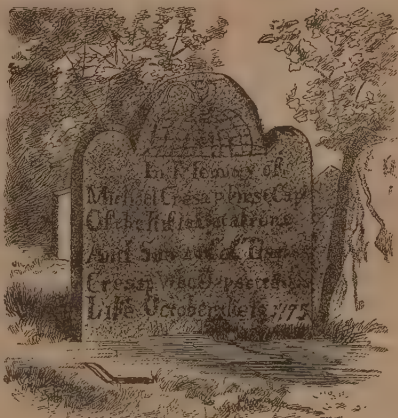 In Memory of
Michael Cresap First Cap
Of the Rifle Batalions
And Son to Col Thomas
Cresap Who Departed this
Life October the 18, 1775